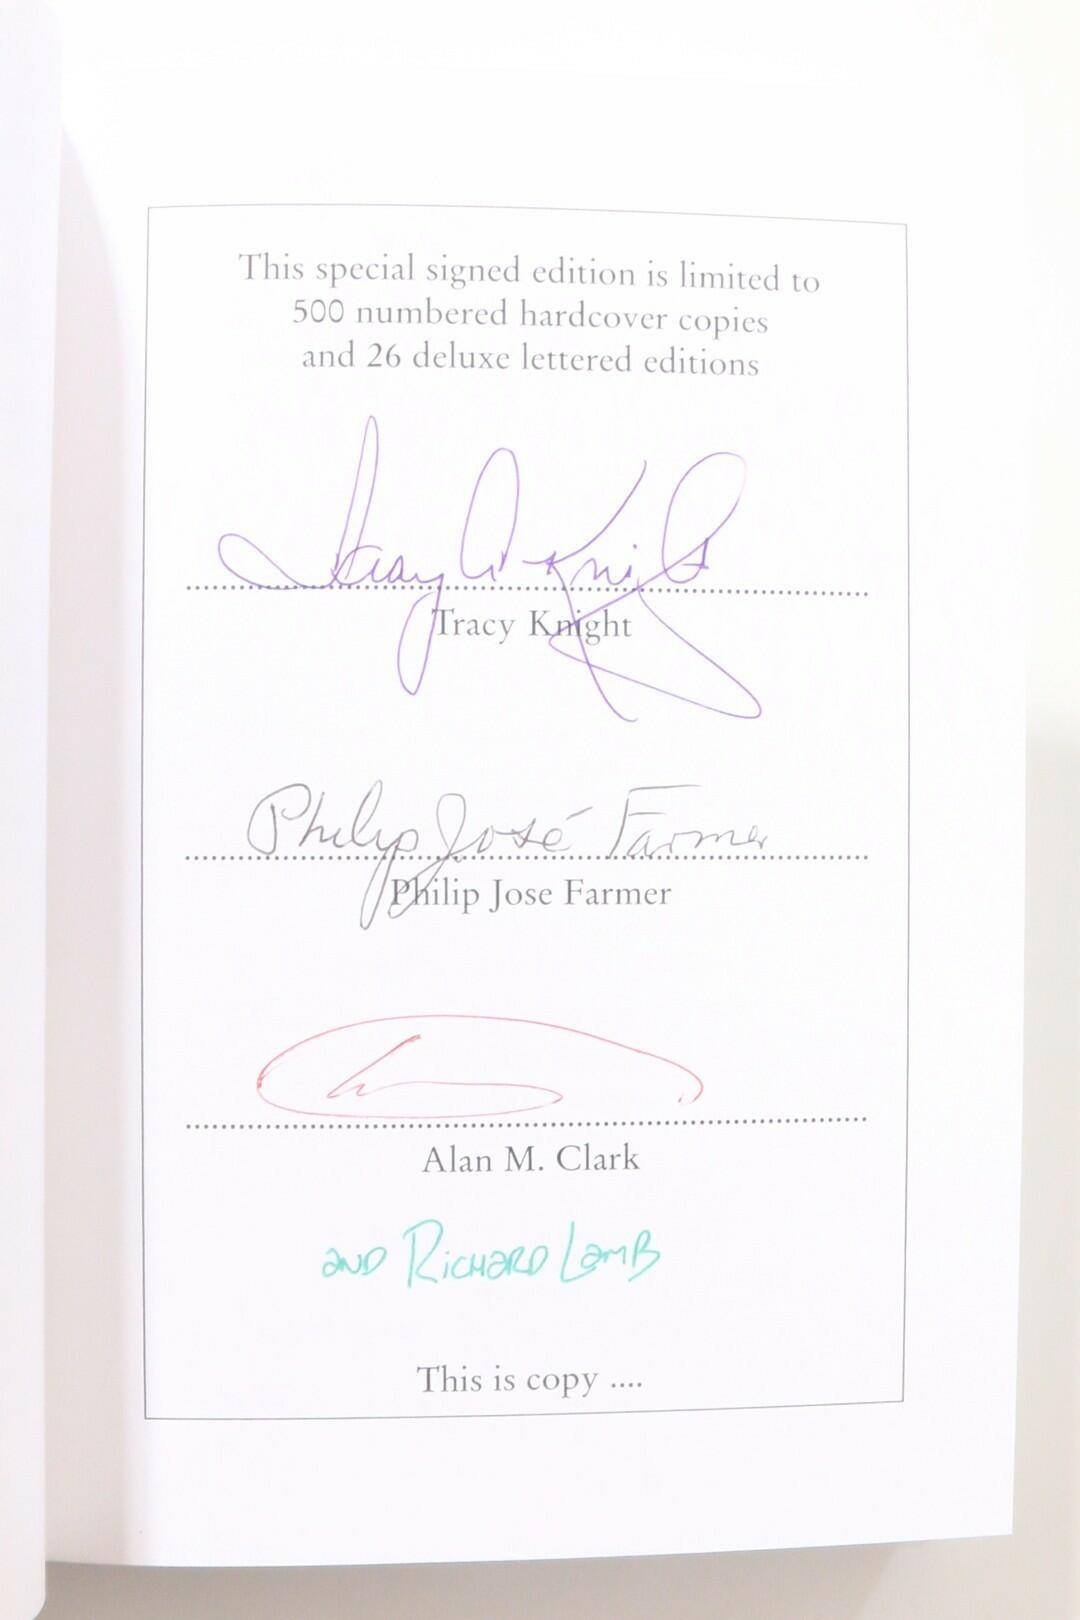 This special signed edition is limited to
500 numbered hardcover copies
and 26 deluxe lettered editions
Tracy Knight
Tracy Knight
Philip José Farmer
Philip Jose Farmer
Alan M. Clark
and Richard Lamb
This is copy ....